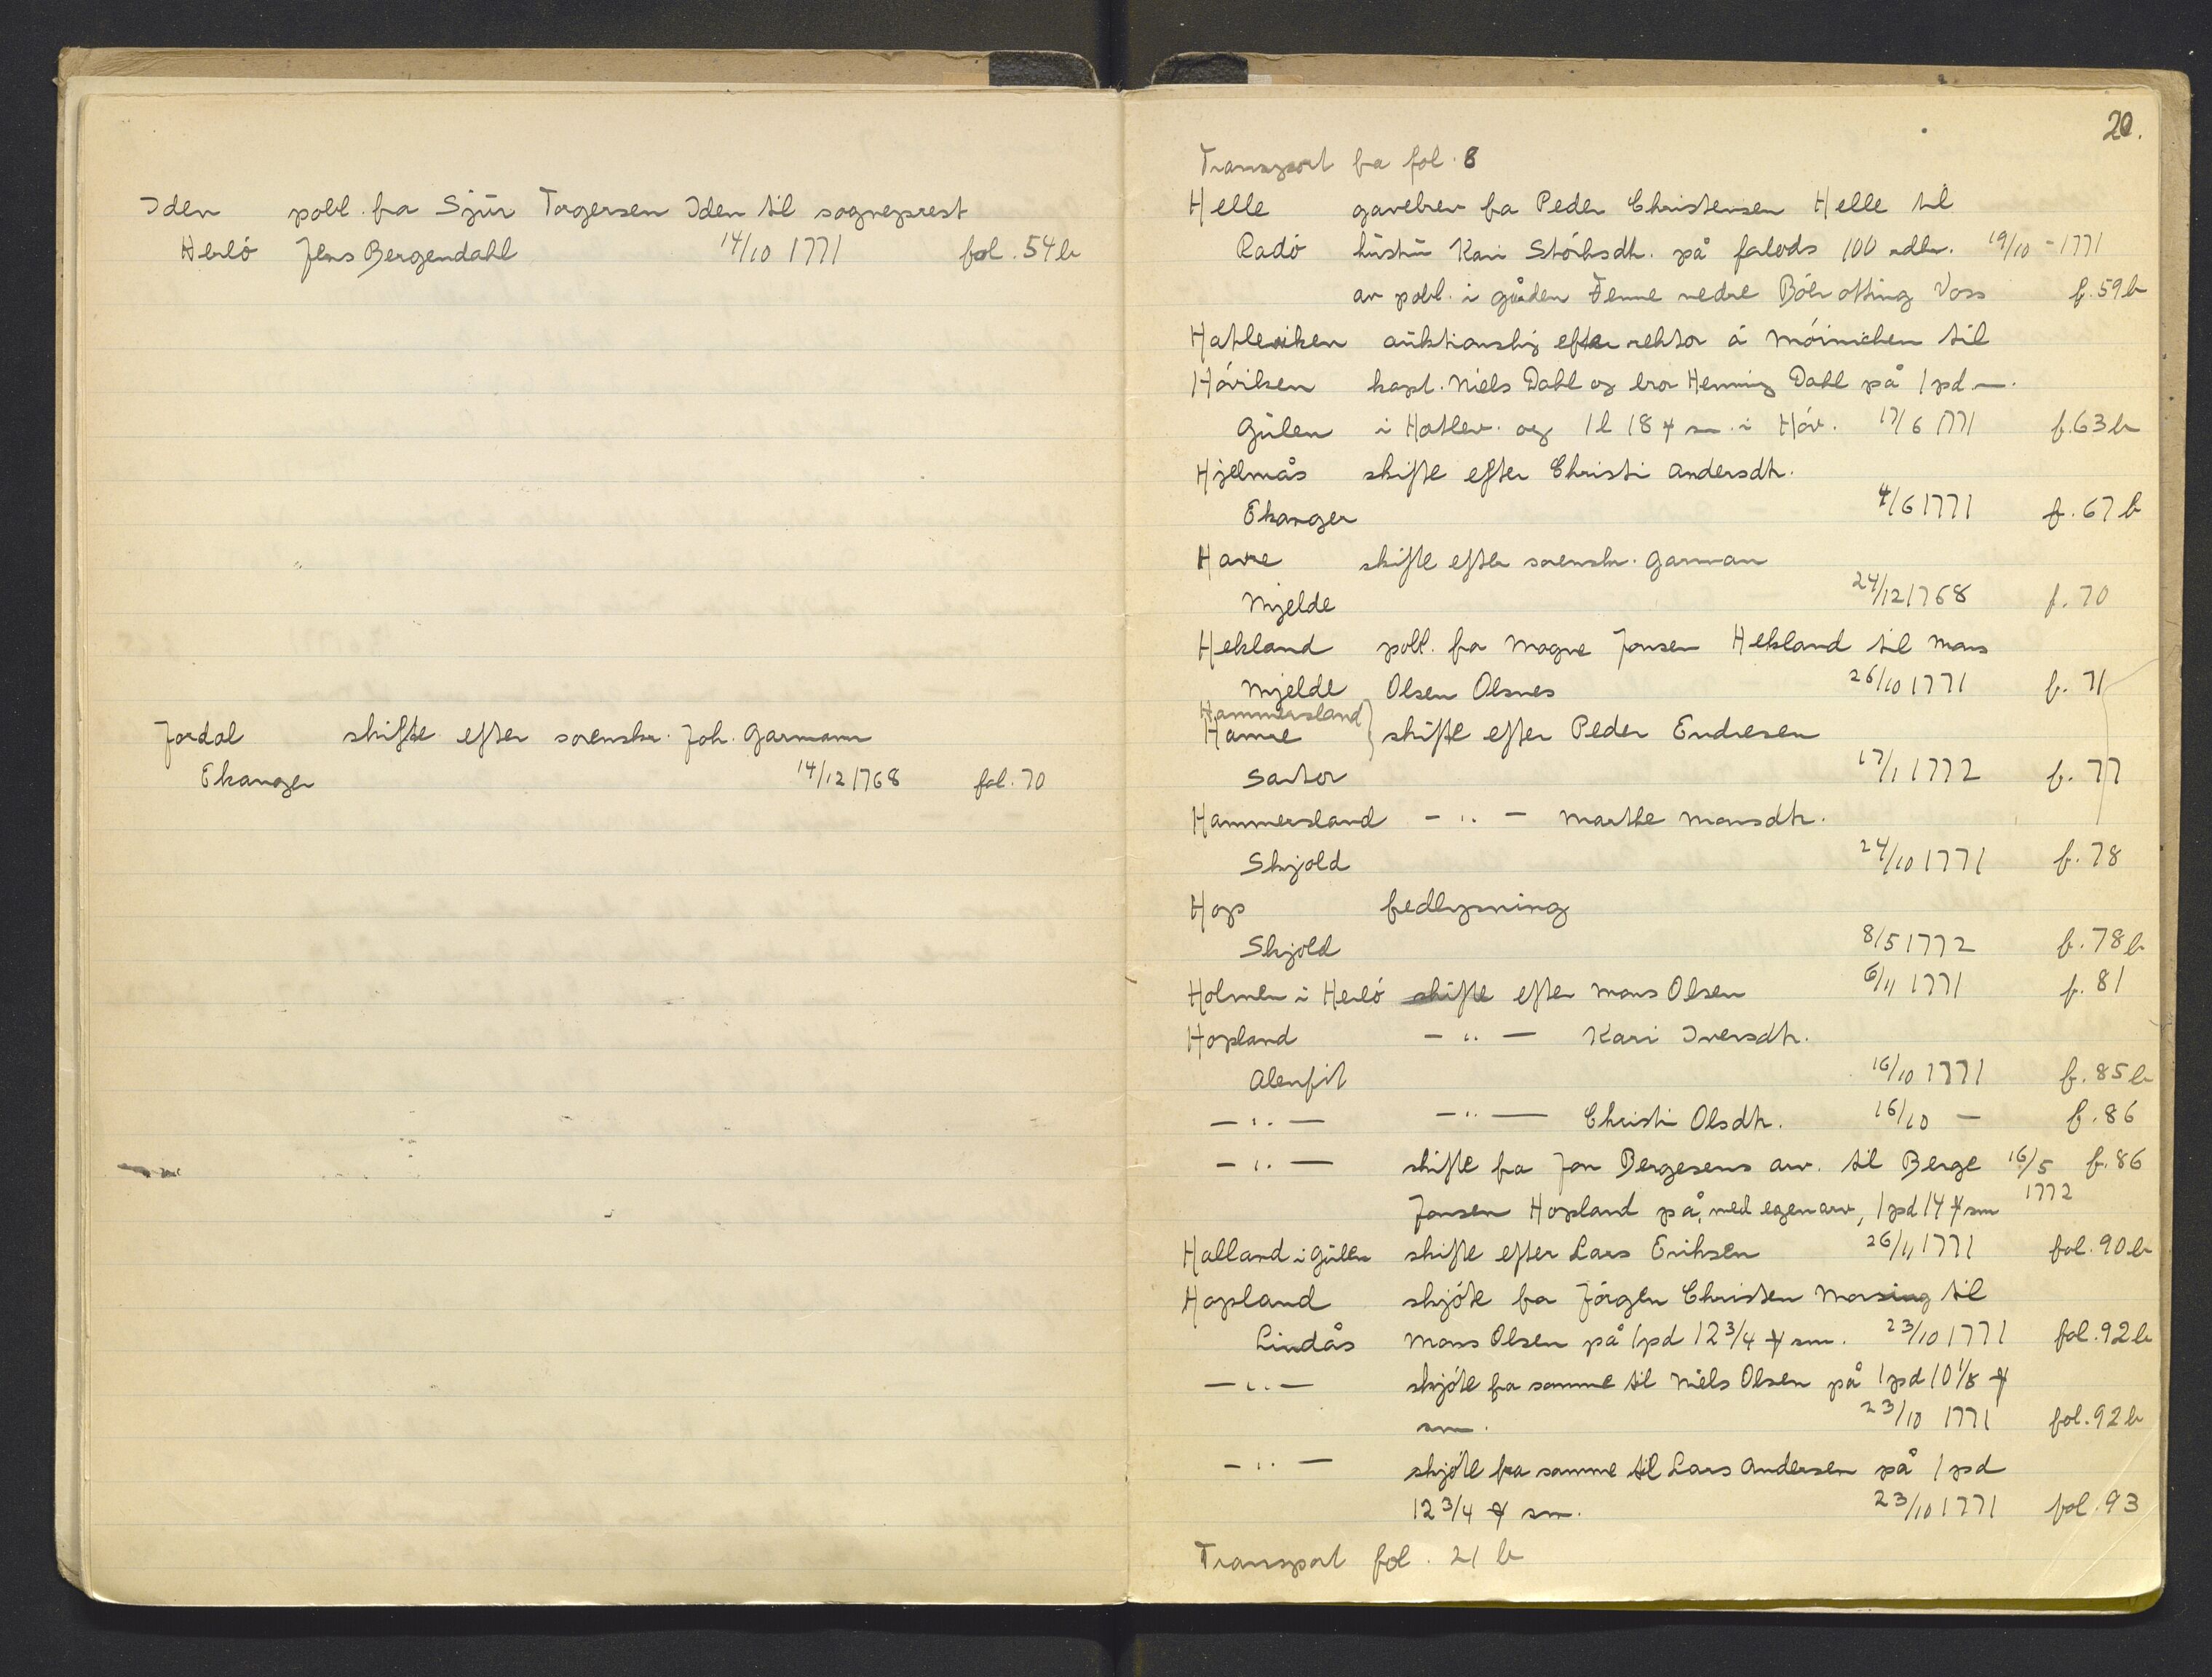 Iden pobl. fra Sjūr Torgersen Iden til sogneprest
Herlö Jens Bergendahl 14/10 1771 fol. 54 b
Jordal skifte efter sorenskr. Joh. Garmann
Ekanger 14/12 1768 fol. 70
20.
Transport fra fol. 8
Helle gavebrev fra Peder Christensen Helle til
Radö hūstrū Kari Störksdtr. på 100 rdlr. 19/10 - 1771
av pobl. i gården nedre Bör otting Voss f. 59 b
Hatleviken aūktionskj efter rektor á til
Höviken kapt. Niels Dahl og bror Henning Dahl på 1 pd sm.
Gūlen i Hatlev. og 1 l 18 ℔ sm. i Höv. 17/6 1771 f. 63 b
Hjelmås skifte efter Christi Andersdtr.
Ekanger 4/6 1771 f. 67 b
Havre skifte efter sorenskr. Garman
Mjelde 24/12 1768 f. 70
Hekland pobl. fra Magne Jonsen Hekland til Mons
Mjelde Olsen Olsnes 26/10 1771 f. 71
Hammersland
Hamre } skifte efter Peder Endresen
Sartor 17/1 1772 f. 77
Hammersland - " - Marthe Monsdtr.
Skjold 24/10 1771 f. 78
Hop fredlysning
Skjold 8/5 1772 f. 78 b
Holmen i Herlö skifte efter Mons Olsen 6/11 1771 f. 81
Hopland - " - Kari Iversdtr.
Alenfit 16/10 1771 f. 85 b
- " - - " - Christi Olsdtr. 16/10 - f. 86
- " - skifte fra Jon Bergesens arv. til Berge 16/5 f. 86
Jonsen Hopland på, med egen arv, 1 pd 14 ℔ sm 1772
Halland i Gūlen skifte efter Lars Eriksen 26/11 1771 fol. 90 b
Hopland skjöte fra Jörgen Christen til
Lindås Mons Olsen på 1 pd 12 3/4 ℔ sm. 23/10 1771 fol. 92 b
- " - skjöte fra samme til Niels Olsen på 1 pd 10 1/8 ℔
sm. 23/10 1771 fol. 92 b
- " - skjöte fra samme til Lars Andersen på 1 pd
12 3/4 ℔ sm. 23/10 1771 fol. 93
Transport fol. 21 b